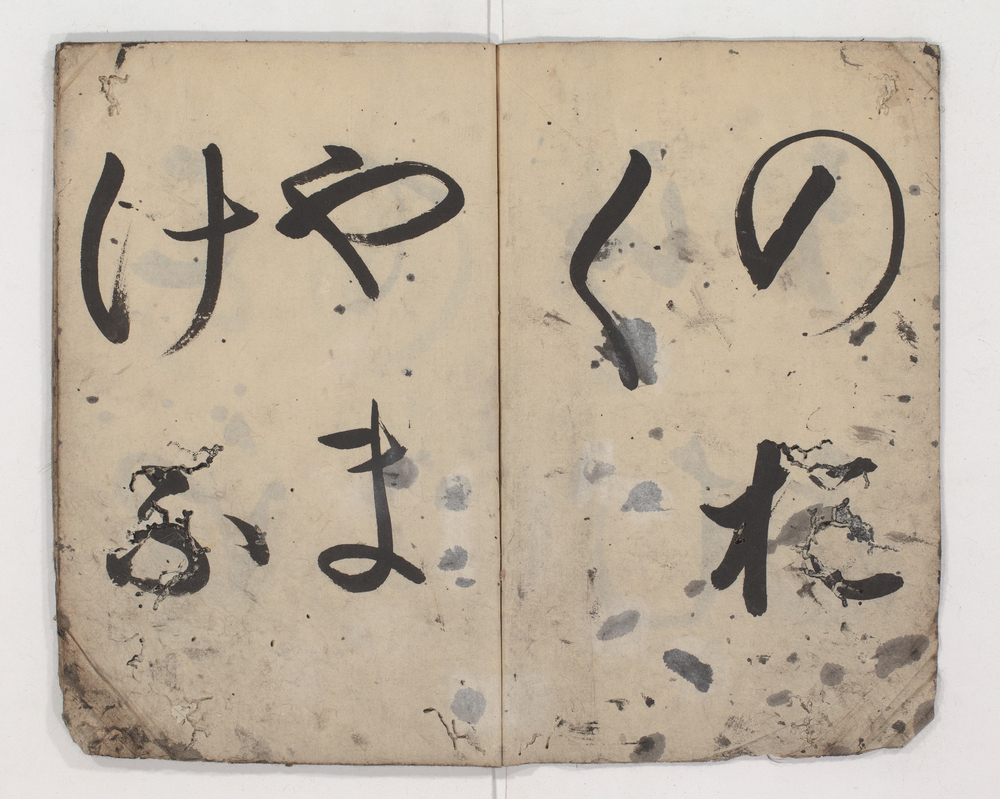 のお
く
やま
けふ